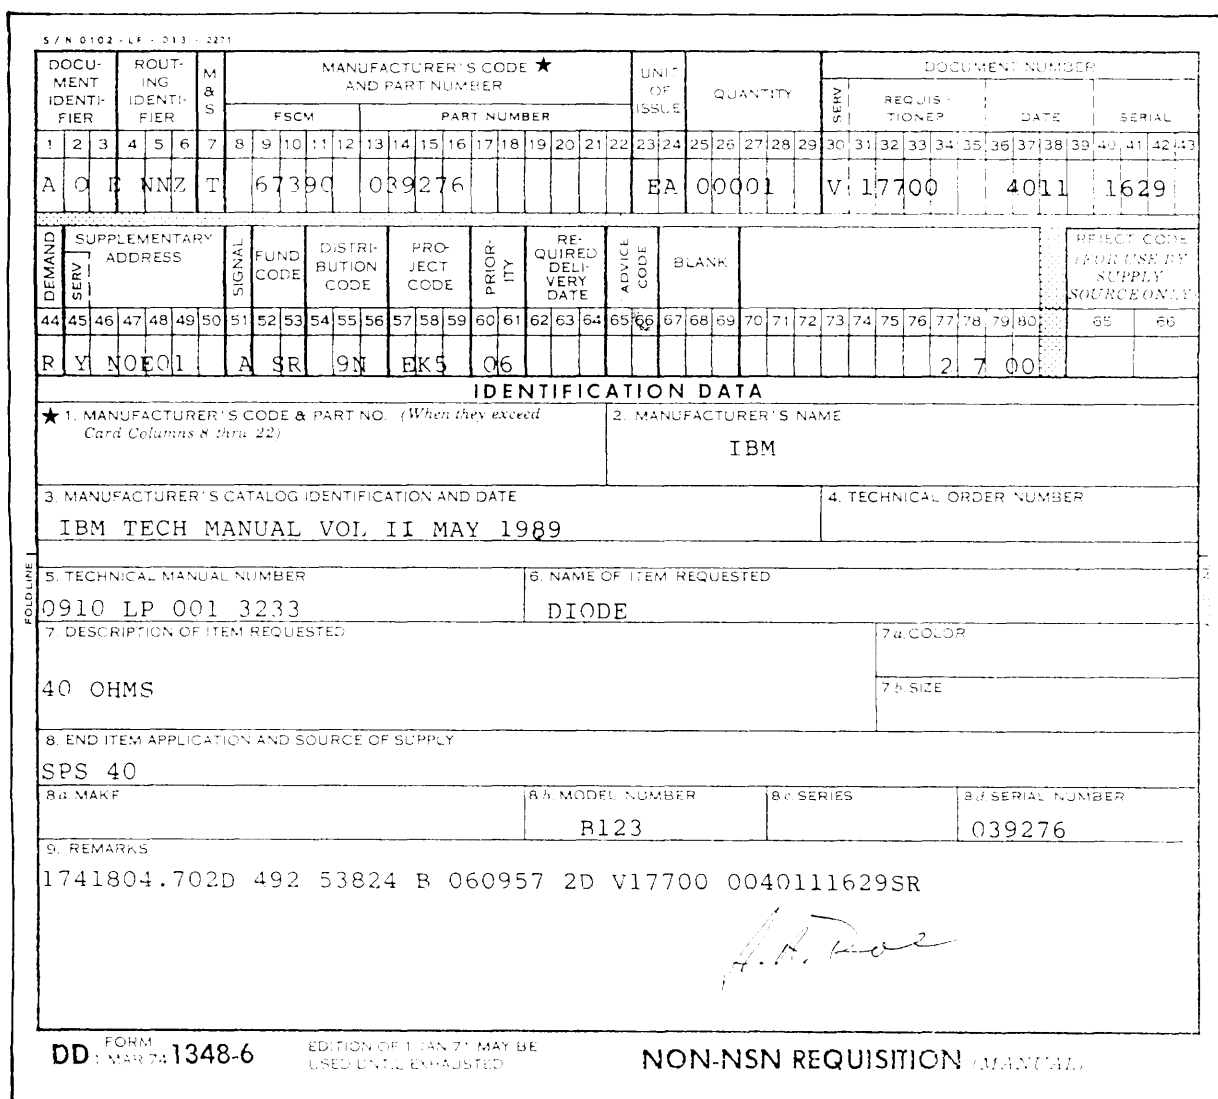 S/N 0102-LF-013-2271
DOCU-MENT IDENTI-FIER ROUT-ING IDENTI-FIER M & S MANUFACTURER'S CODE ★ AND PART NUMBER UNIT OF ISSUE QUANTITY DOCUMENT NUMBER
FSCM PART NUMBER SERV REQUIS-TIONER DATE SERIAL
1 2 3 4 5 6 7 8 9 10 11 12 13 14 15 16 17 18 19 20 21 22 23 24 25 26 27 28 29 30 31 32 33 34 35 36 37 38 39 40 41 42 43
A O E NNZ T 67390 039276 EA 00001 V 17700 4011 1629
DEMAND SERV SUPPLEMENTARY ADDRESS SIGNAL FUND CODE DISTRI-BUTION CODE PRO-JECT CODE PRIOR-ITY RE-QUIRED DELI-VERY DATE ADVICE CODE BLANK REJECT CODE (FOR USE BY SUPPLY SOURCE ONLY)
44 45 46 47 48 49 50 51 52 53 54 55 56 57 58 59 60 61 62 63 64 65 66 67 68 69 70 71 72 73 74 75 76 77 78 79 80 65 66
R Y N0E01 A SR 9N EK5 06 2 7 00
IDENTIFICATION DATA
★ 1. MANUFACTURER'S CODE & PART NO. (When they exceed
Card Columns 8 thru 22)
2. MANUFACTURER'S NAME
IBM
3. MANUFACTURER'S CATALOG IDENTIFICATION AND DATE
IBM TECH MANUAL VOL II MAY 1989
4. TECHNICAL ORDER NUMBER
FOLD LINE
5. TECHNICAL MANUAL NUMBER
0910 LP 001 3233
6. NAME OF ITEM REQUESTED
DIODE
7. DESCRIPTION OF ITEM REQUESTED
40 OHMS
7a. COLOR
7b. SIZE
8. END ITEM APPLICATION AND SOURCE OF SUPPLY
SPS 40
8a. MAKE
8b. MODEL NUMBER
B123
8c. SERIES
8d. SERIAL NUMBER
039276
9. REMARKS
1741804.702D 492 53824 B 060957 2D V17700 0040111629SR
DD FORM 1 MAR 74 1348-6
EDITION OF 1 JAN 71 MAY BE
USED UNTIL EXHAUSTED
NON-NSN REQUISITION (MANUAL)